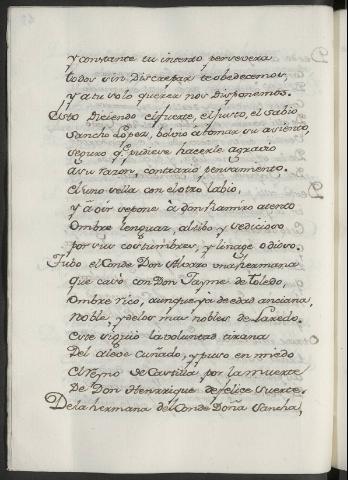 y constante tu intento persevera
todos sin Discrepar te obedecemos,
y a tu solo querer nos Disponemos.
Esto Diciendo el fuerte, el justo, el sabio
Sancho Lopez, bolvio a tomar su asiento,
seguro q.e pudiese hacerle agravio
a su razon, contrario pensamiento.
El uno sella con el otro labio,
y a oir se pone à Don Ramiro atento
Ombre lenguaz, altibo y sedicioso
por sus costumbres, y linage odioso.
Tubo el Conde Don Alvaro una hermana
que casò con Don Jayme de Toledo,
Ombre rico, aunque ya de edad anciana,
noble y de los mas nobles de Laredo.
este siguiò la voluntad tirana
Del aleve Cuñado, y puso en miedo
El Reyno de Castilla por la muerte
De Don Henrrique de felice suerte.
De la hermana del Conde Doña Sancha,